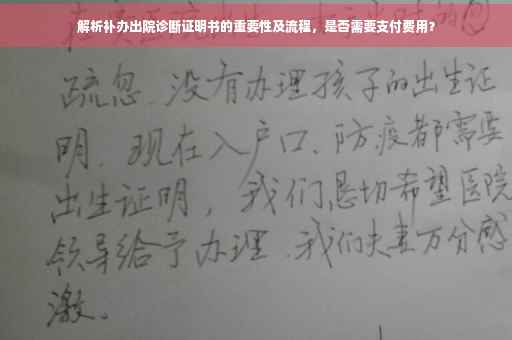 解析补办出院诊断证明书的重要性及流程，是否需要支付费用？
疏忽、没有办理孩子的出生证
明、现在入户口、防疫都需要
出生证明，我们恳切希望医院
领导给予办理、我们夫妻万分感
激。